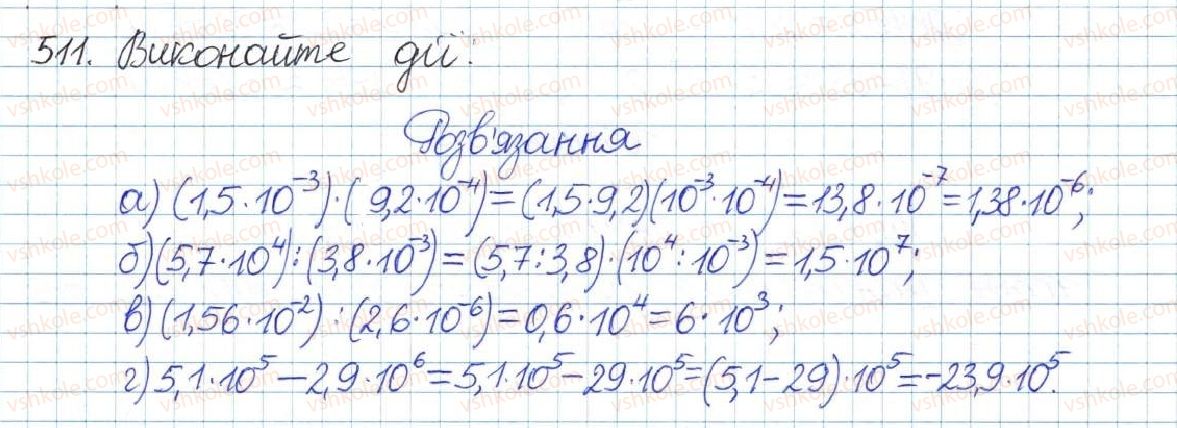 511. Виконайте дії:
Розв'язання
а) (1,5·10⁻³)·(9,2·10⁻⁴)=(1,5·9,2)(10⁻³·10⁻⁴)=13,8·10⁻⁷=1,38·10⁻⁶;
б) (5,7·10⁴):(3,8·10⁻³)=(5,7:3,8)·(10⁴:10⁻³)=1,5·10⁷;
в) (1,56·10⁻²):(2,6·10⁻⁶)=0,6·10⁴=6·10³;
г) 5,1·10⁵-2,9·10⁶=5,1·10⁵-29·10⁵=(5,1-29)·10⁵=-23,9·10⁵.
vshkole.com